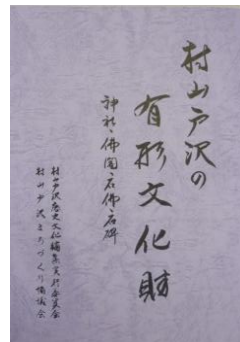 村山戸沢の
有形文化財
神社・佛閣・石佛・石碑
村山戸沢歴史文化編集実行委員会
村山戸沢まちづくり協議会